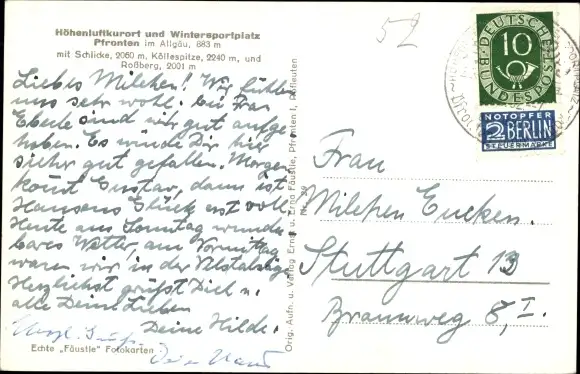 52
Höhenluftkurort und Wintersportplatz
Pfronten im Allgäu, 883 m
mit Schlicke, 2060 m, Köllespitze, 2240 m, und
Roßberg, 2001 m
Liebes Milchen! Wir fühlen
uns sehr wohl. bei Frau
Eberle sind wir gut aufge
hoben. Es würde Dir hier
sicher gut gefallen. Morgen
komt Gustav, dann ist
Hansens Glück erst voll.
Heute am Sonntag wunder
bares Wetter, am Vormittag
waren wir in der
Herzlichst grüßt Dich u.
alle Deine Lieben
Deine Hilde.
Herzl. Grüße
Dein Hans
Echte „Fäustle" Fotokarten
Orig. Aufn. u. Verlag Ernst u. Erna Fäustle, Pfronten I, Rehleuten
Nr. 38
DEUTSCHE BUNDESPOST
10
NOTOPFER
2 BERLIN
STEUERMARKE
Frau
Milchen Eucken.
Stuttgart 13
8, I.